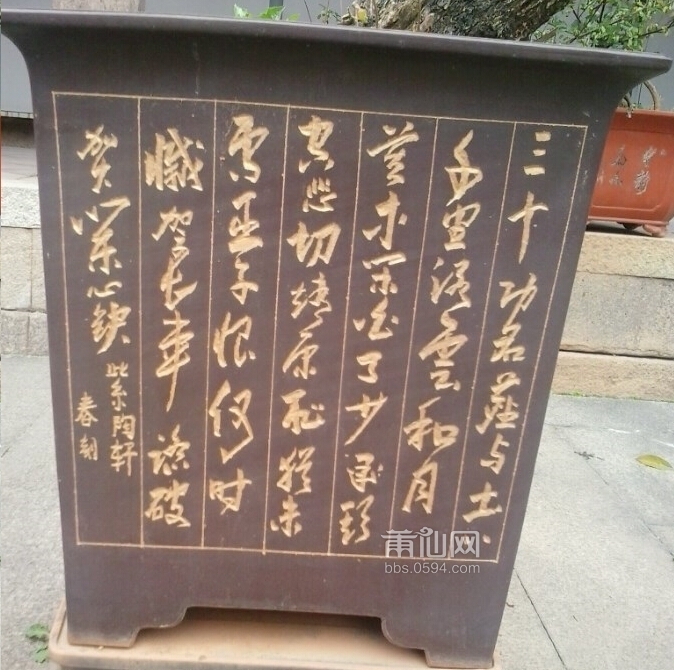 三十功名塵与土
千里路雲和月
莫等闲白了少年頭
空悲切靖康耻猶未
雪臣子恨何时
滅駕长車踏破
贺兰山缺
此系陶轩
春朝
莆仙网
bbs.0594.com